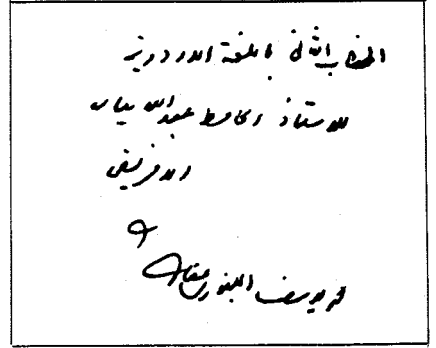 الخطاب الثاني باللغة الاردوية
للاستاذ الحافظ عبدالله
الافريقي
محمد يوسف البنوري عفا